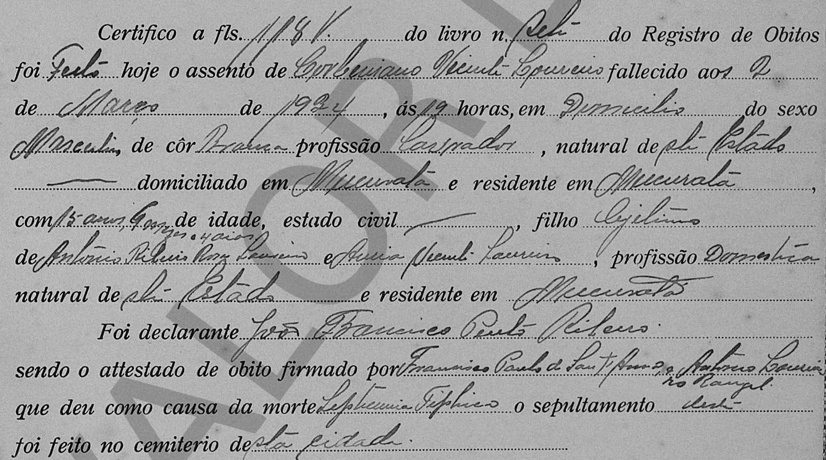 Certifico a fls. 118 V. do livro n. seti do Registro de Obitos
foi Feito hoje o assento de Vicenti Loureiro fallecido aos 2
de Março de 1934, ás 19 horas, em Domicilio do sexo
Masculino de côr Branca profissão Lavrador, natural de sti Estado
domiciliado em Mucuratá e residente em Mucuratá,
com 15 anos, 6 mezes e 4 dias de idade, estado civil, filho
de Antônio Ribeiro Rosa Loureiro e Vicenti Loureiro, profissão Domestica
natural de sti Estado e residente em Mucuratá
Foi declarante João Francisco Pinto Ribeiro.
sendo o attestado de obito firmado por Francisco Paulo de Sant'Anna e Antônio Loureiro
Rangel
que deu como causa da morte Septicemia o sepultamento desti
foi feito no cemiterio desta cidade.
VALOR